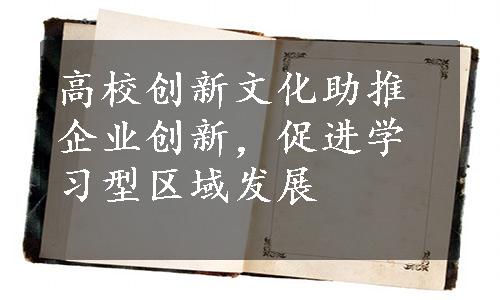 高校创新文化助推
企业创新，促进学
习型区域发展